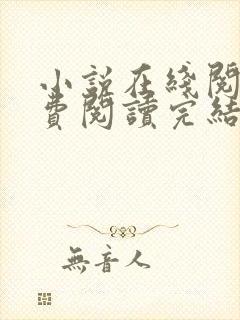 小説在綫閱
費閱讀完結
無音人